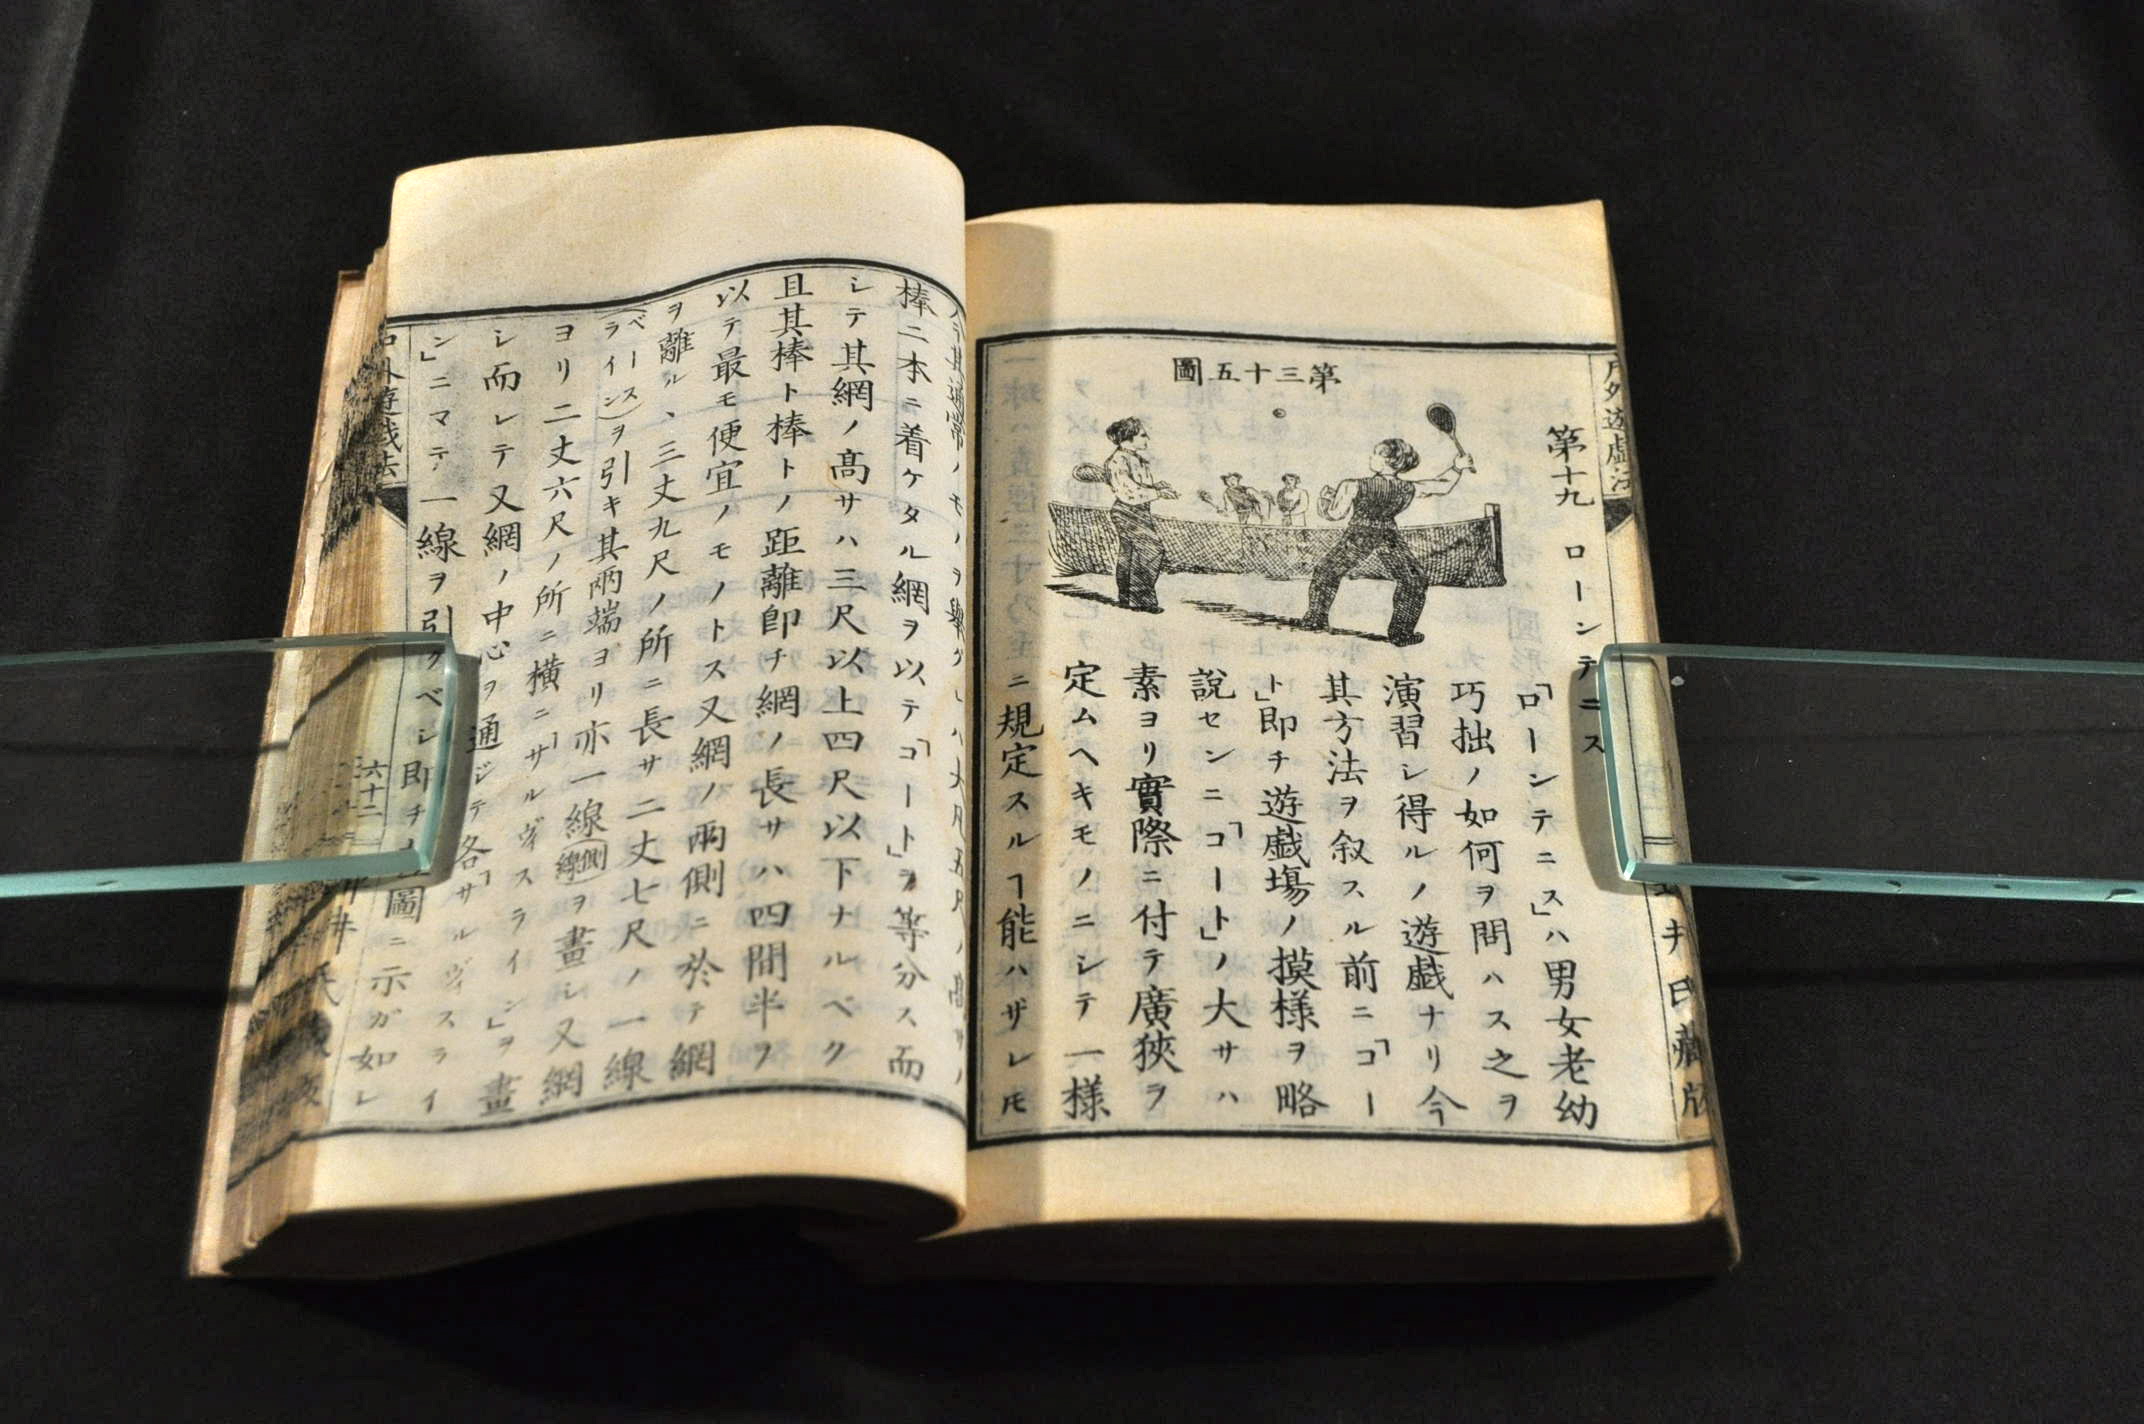 戶外遊戯法
第三十五圖
第十九 ローンテニス
「ローンテニス」ハ男女老幼
巧拙ノ如何ヲ問ハス之ヲ
演習シ得ルノ遊戯ナリ今
其方法ヲ叙スル前ニ「コー
ト」即チ遊戯塲ノ摸樣ヲ略
說センニ「コート」ノ大サハ
素ヨリ實際ニ付テ廣狹ヲ
定ムヘキモノニシテ一樣
ニ規定スルヿ能ハザレ𪜈
井氏藏版
ノヲ擧グレハ大凡五尺ノ高サノ
棒二本ニ着ケタル網ヲ以テ「コート」ヲ等分ス而
シテ其網ノ高サハ三尺以上四尺以下ナルベク
且其棒ト棒トノ距離即チ網ノ長サハ四間半ヲ
以テ最モ便宜ノモノトス又網ノ兩側ニ於テ網
ヲ離ル、三丈九尺ノ所ニ長サ二丈七尺ノ一線
(ベースライン)ヲ引キ其兩端ヨリ亦一線(側線)ヲ畫シ又網
ヨリ二丈六尺ノ所ニ横ニ「サルヴィスライン」ヲ畫
シ而レテ又網ノ中心ヲ通ジテ各「サルヴィスライ
ン」ニマテ一線ヲ引クベシ即チ圖ニ示ガ如シ
戶外遊戯法
六十二